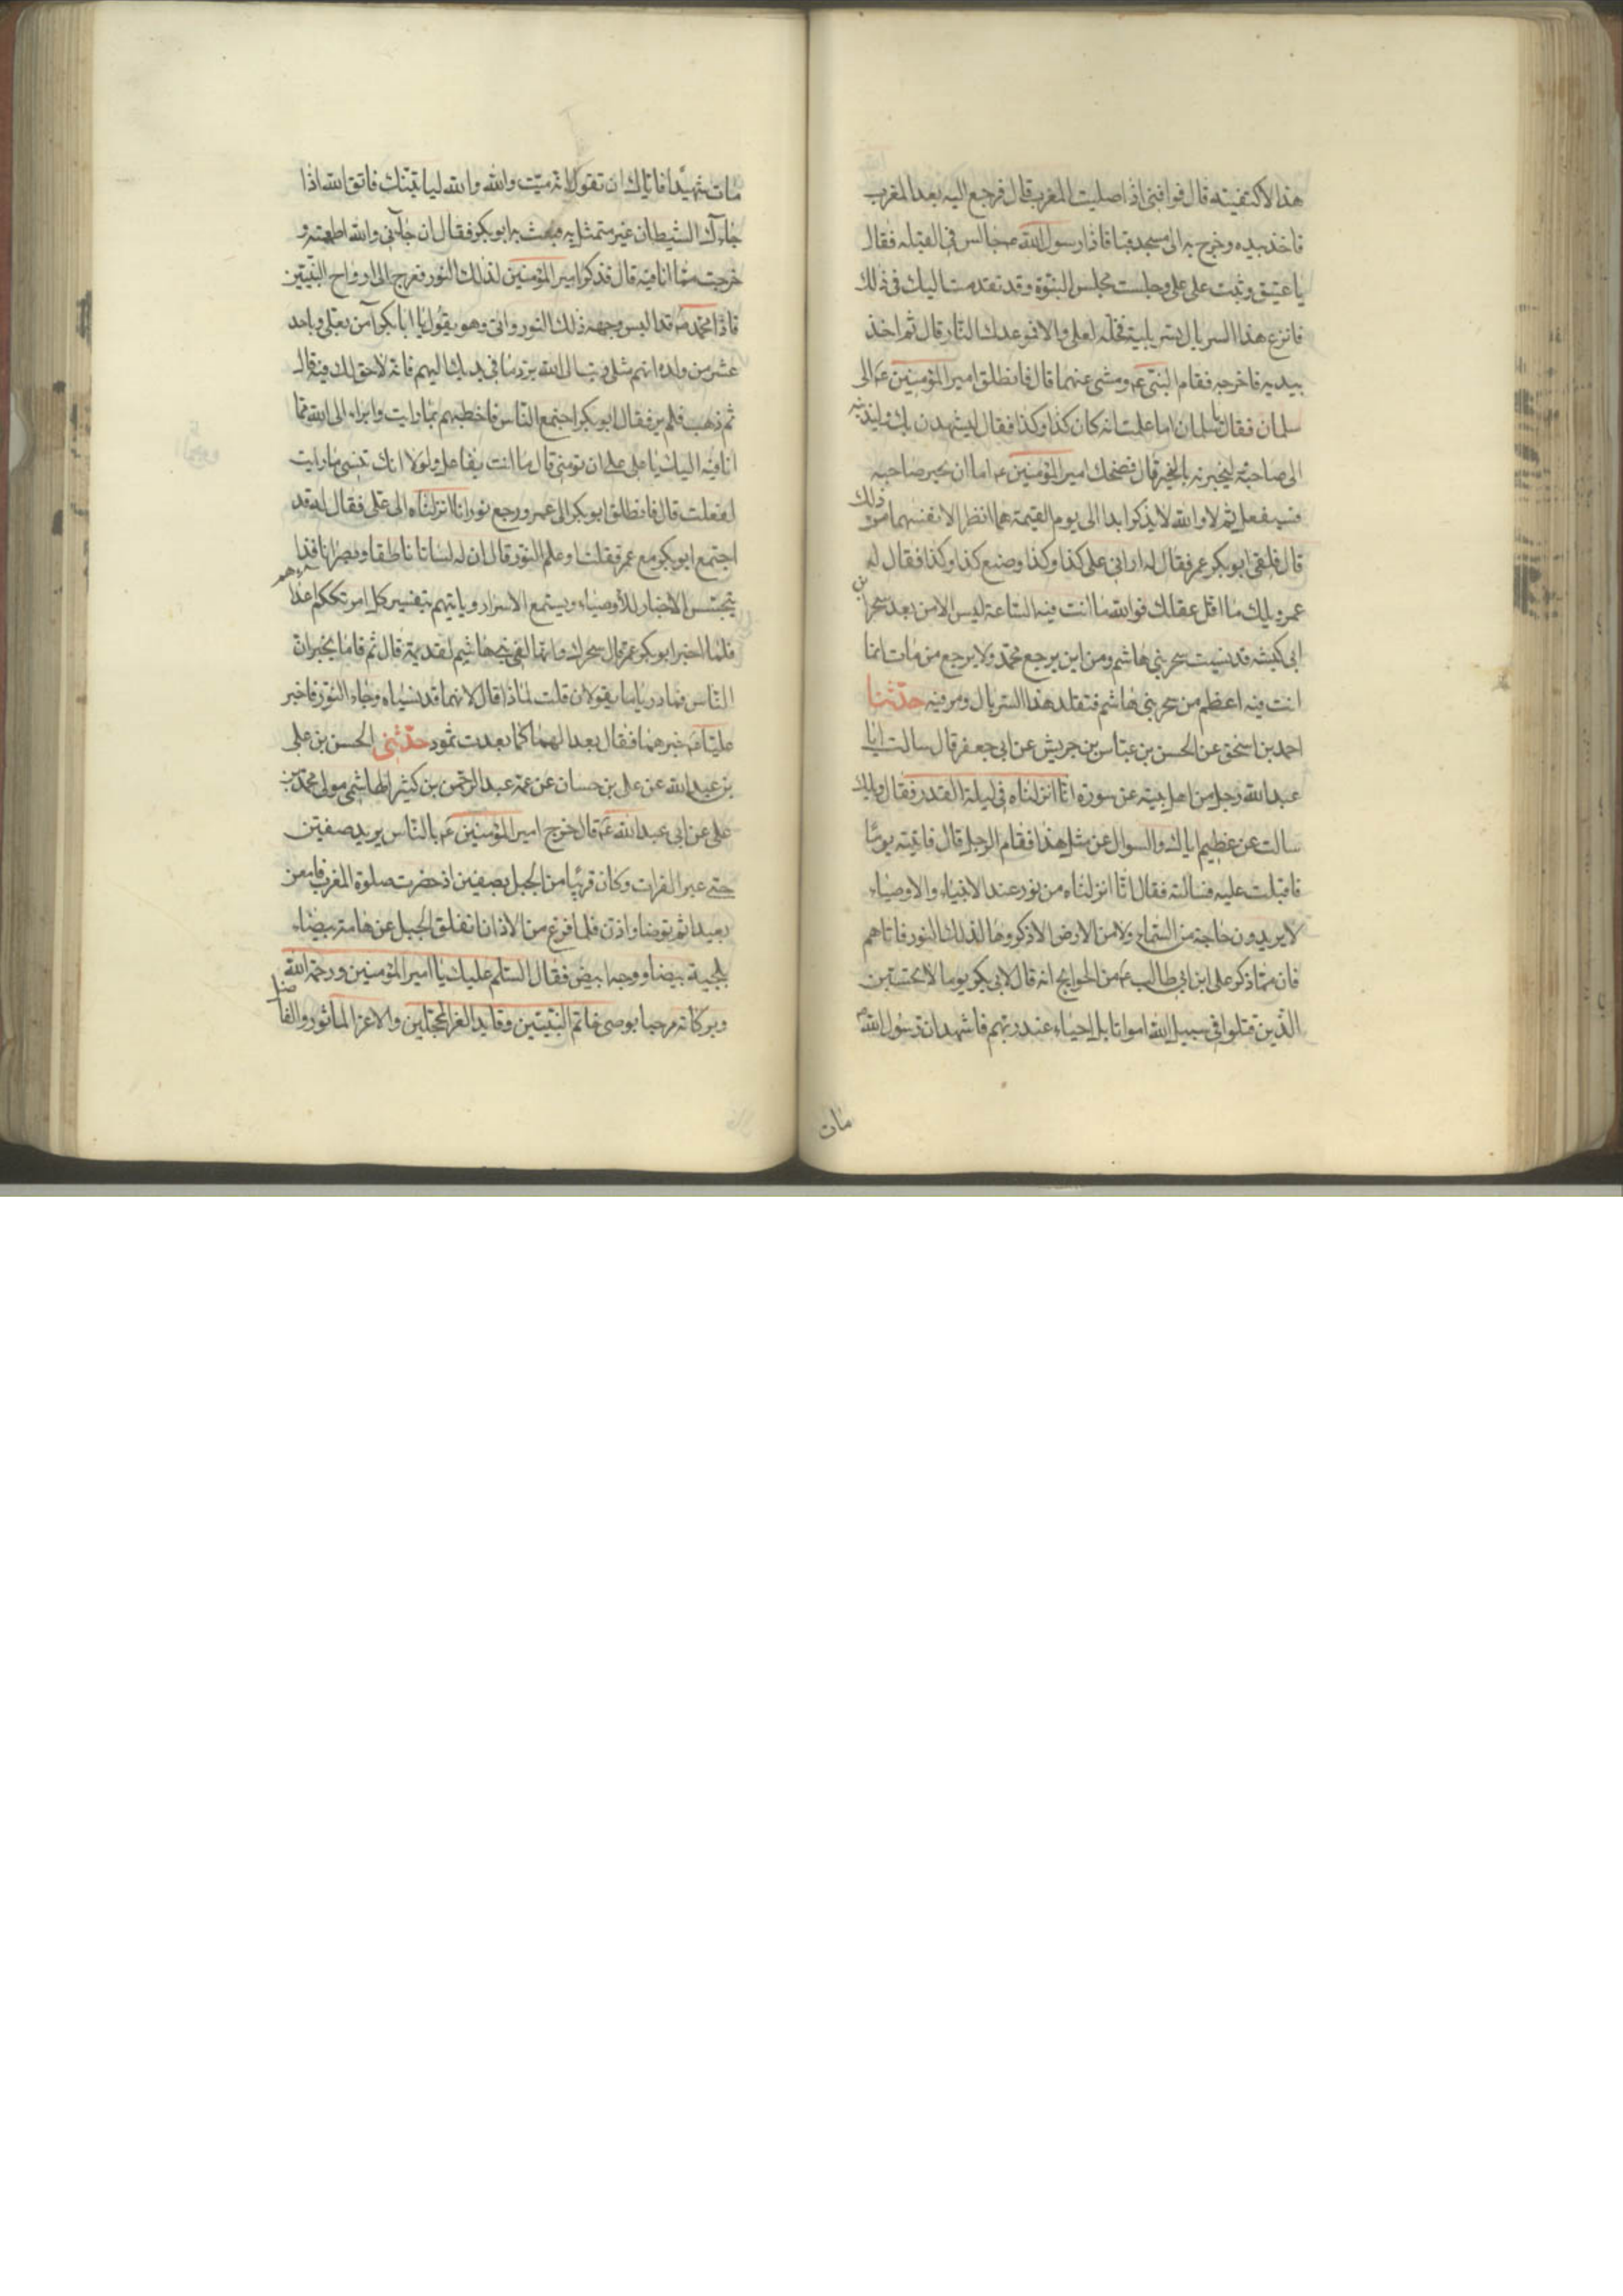 هذا لاكتفيت به قال فوافنى اذا صليت المغرب قال فرجع اليه بعد المغرب
فاخذ بيده وخرج به الى مسجد قبا فاذا رسول الله ص جالس فى القبله فقال
يا عتيق وثبت على على وجلست مجلس النبوة وقد تقدمت اليك فى ذلك
فانزع هذا السربال الذى تسربلته فخله لعلى والا فموعدك النار قال ثم اخذ
بيديه فاخرجه فقام النبى ع ومشى عنهما قال فانطلق امير المؤمنين ع الى
سلمان فقال يا سلمان اما علمت انه كان كذا وكذا فقال ليشهدن بك وليندبنه
الى صاحبه ليخبرنه بالخبر قال فضحك امير المؤمنين ع اما ان يخبر صاحبه
فسيفعل ثم لا والله لا يذكرا ابدا الى يوم القيمة هما انظر لانفسهما من ذلك
قال فلقى ابو بكر عمر فقال له ارانى على كذا وكذا وصنع كذا وكذا فقال له
عمر ويلك ما اقل عقلك فوالله ما انت فيه الساعة ليس الا من بعد سحر ابن
ابى كبشه قد نسيت سحر بنى هاشم ومن اين يرجع محمد ولا يرجع من مات انما
انت فيه اعظم من سحر بنى هاشم فتقلد هذا السربال ومر فيه حدثنا
احمد بن اسحق عن الحسن بن عباس بن جريش عن ابى جعفر قال سالت ابا
عبد الله رجل من اهل بيته عن سورة انا انزلناه فى ليلة القدر فقال ويلك
سالت عن عظيم اياك والسوال عن مثل هذا فقام الرجل قال فاتيته يوما
فاقبلت عليه فسالته فقال انا انزلناه من نور عند الانبياء والاوصياء
لا يريدون حاجة من السماء ولا من الارض الا ذكروها لذلك النور فاتاهم
فان مما ذكر على ابن ابى طالب ع من الحوايج انه قال لابى بكر يوما لا تحسبن
الذين قتلوا فى سبيل الله امواتا بل احياء عند ربهم فاشهد ان رسول الله ص
مات
مات شهيدا فاياك ان تقول انه ميت والله والله لياتينك فاتق الله اذا
جاءك الشيطان غير متمثل به فبعث به ابو بكر فقال ان جاءنى والله اطعته و
خرجت مما انا فيه قال فذكر امير المؤمنين لذلك النور فعرج الى ارواح النبيين
فاذا محمد ص قد البس وجهه ذلك النور واتى وهو يقول يا ابا بكر آمن بعلى وباحد
عشر من ولده انهم مثلى الا النبوة وتب الى الله برد ما فى يديك اليهم فانه لا حق لك فيه قال
ثم ذهب فلم ير فقال ابو بكر اجمع الناس فاخطبهم بما رايت وابراء الى الله مما
انا فيه اليك يا على على ان تومنى قال ما انت بفاعل ولولا انك تنسى ما رايت
لفعلت قال فانطلق ابو بكر الى عمر ورجع نور انا انزلناه الى على فقال له قد
اجتمع ابو بكر مع عمر فقلت او علم النور قال ان له لسانا ناطقا وبصرا نافذا
يتجسس الاخبار للاوصياء ويستمع الاسرار ويأتيهم بتفسير كل امر تكتم به اعداءهم
فلما اخبر ابو بكر عمر قال سحرك وانها لفى بنى هاشم لقديمة قال ثم قاما يخبران
الناس فما دريا ما يقولان قلت لماذا قال لانهما قد نسياه وجاء النور فاخبر
عليا ع خبرهما فقال بعدا لهما كما بعدت ثمود حدثنى الحسن بن على
بن عبد الله عن على بن حسان عن عمه عبد الرحمن بن كثير الهاشمى مولى محمد بن
على عن ابى عبد الله ع قال خرج امير المؤمنين ع بالناس يريد صفين
حتى عبر الفرات وكان قريبا من الجبل بصفين اذ حضرت صلوة المغرب فامعن
بعيدا ثم توضا واذن فلما فرغ من الاذان انفلق الجبل عن هامة بيضاء
بلحية بيضا ووجه ابيض فقال السلم عليك يا امير المؤمنين ورحمة الله
وبركاته مرحبا بوصى خاتم النبيين وقايد الغر المحجلين والاعز الماثور والفاضل